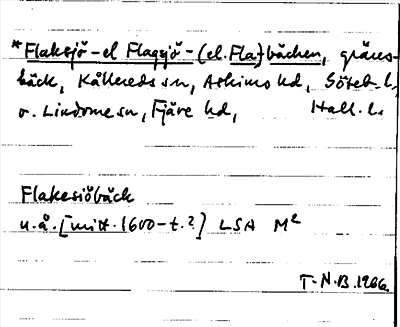 *Flaksjö- el Flagsjö- (el. Fla-)bäcken, gräns-
bäck, Kållereds sn, Askims hd, Göteb. l.
o. Lindome sn, Fjäre hd, Hall. l.
Flakesiöbäck
u.å. [mitt. 1600-t.?] LSA M²
T.N.B. 1966.